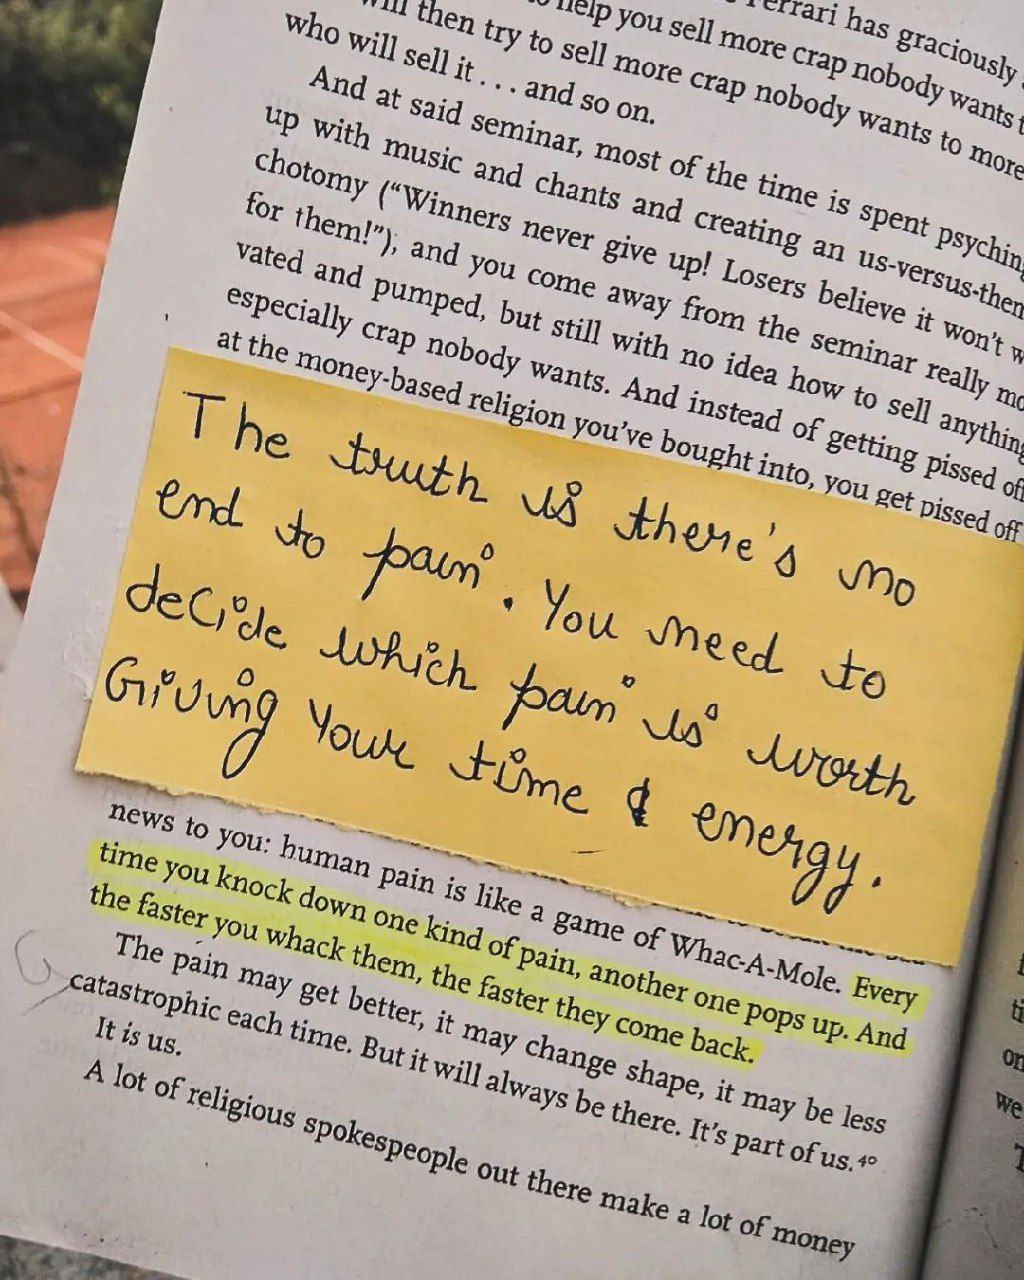 help you sell more crap nobody wants
Ferrari has graciously
will then try to sell more crap nobody wants to more
who will sell it . . . and so on.
And at said seminar, most of the time is spent psyching
up with music and chants and creating an us-versus-them
chotomy (“Winners never give up! Losers believe it won’t w
for them!”), and you come away from the seminar really mo
vated and pumped, but still with no idea how to sell anything
especially crap nobody wants. And instead of getting pissed off
at the money-based religion you’ve bought into, you get pissed off
The truth is there's no
end to pain. You need to
decide which pain is worth
Giving Your time & energy.
news to you: human pain is like a game of Whac-A-Mole. Every
time you knock down one kind of pain, another one pops up. And
the faster you whack them, the faster they come back.
The pain may get better, it may change shape, it may be less
catastrophic each time. But it will always be there. It’s part of us.⁴⁰
It is us.
A lot of religious spokespeople out there make a lot of money
ti
on
we